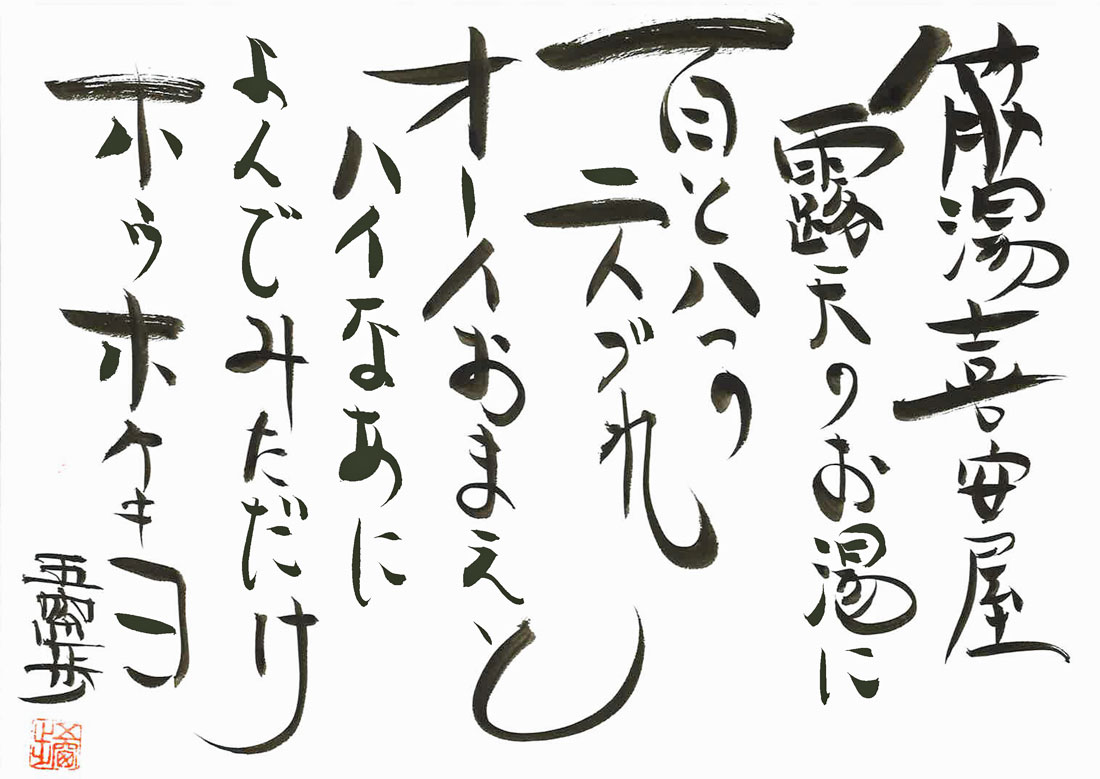 筋湯喜安屋
露天のお湯に
百と八つの
二人づれ
オーイおまえと
ハイなあに
よんでみただけ
ホゥホケキヨ